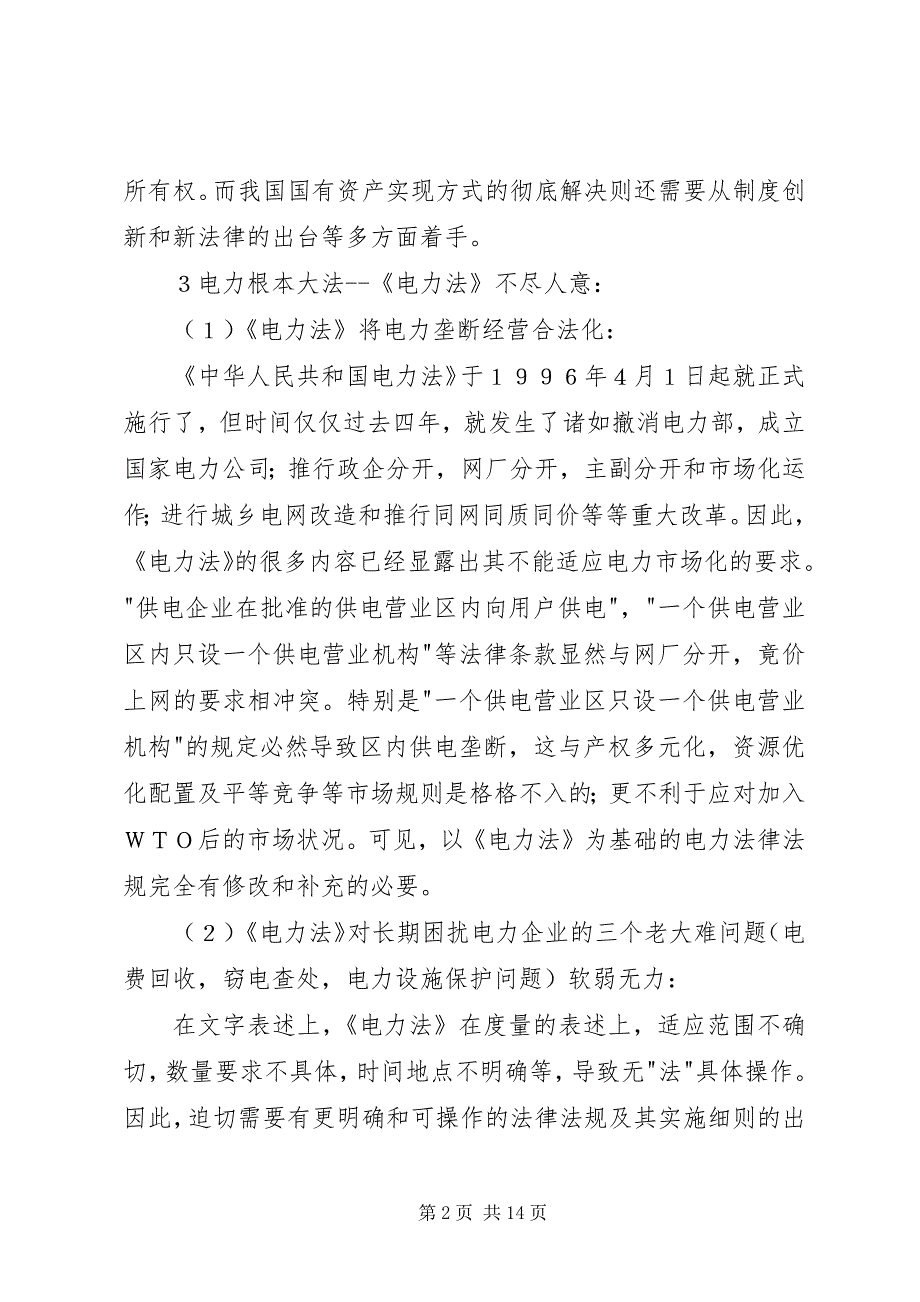 所有权。而我国国有资产实现方式的彻底解决则还需要从制度创
新和新法律的出台等多方面着手。
３电力根本大法--《电力法》不尽人意：
（１）《电力法》将电力垄断经营合法化：
《中华人民共和国电力法》于１９９６年４月１日起就正式
施行了，但时间仅仅过去四年，就发生了诸如撤消电力部，成立
国家电力公司；推行政企分开，网厂分开，主副分开和市场化运
作；进行城乡电网改造和推行同网同质同价等等重大改革。因此，
《电力法》的很多内容已经显露出其不能适应电力市场化的要求。
"供电企业在批准的供电营业区内向用户供电"，"一个供电营业
区内只设一个供电营业机构"等法律条款显然与网厂分开，竟价
上网的要求相冲突。特别是"一个供电营业区只设一个供电营业
机构"的规定必然导致区内供电垄断，这与产权多元化，资源优
化配置及平等竞争等市场规则是格格不入的；更不利于应对加入
ＷＴＯ后的市场状况。可见，以《电力法》为基础的电力法律法
规完全有修改和补充的必要。
（２）《电力法》对长期困扰电力企业的三个老大难问题（电
费回收，窃电查处，电力设施保护问题）软弱无力：
在文字表述上，《电力法》在度量的表述上，适应范围不确
切，数量要求不具体，时间地点不明确等，导致无"法"具体操作。
因此，迫切需要有更明确和可操作的法律法规及其实施细则的出
第 2 页 共 14 页